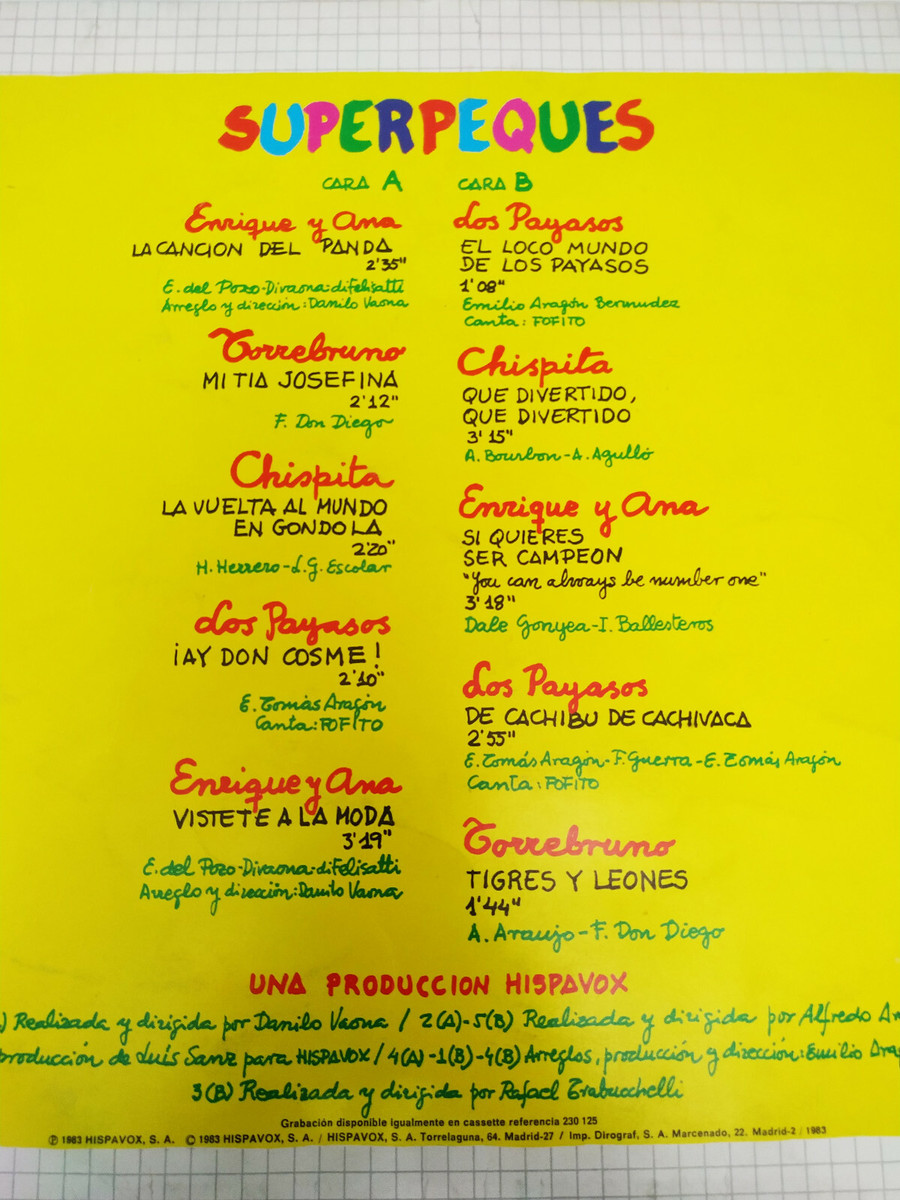 SUPERPEQUES
CARA A
Enrique y Ana
LA CANCION DEL PANDA
2'35"
E. del Pozo-Divaona-diFelisatti
Arreglo y dirección: Danilo Vaona
Torrebruno
MI TIA JOSEFINA
2'12"
F. Don Diego
Chispita
LA VUELTA AL MUNDO
EN GONDOLA
2'20"
H. Herrero-L.G. Escolar
Los Payasos
¡AY DON COSME!
2'10"
E. Tomás Aragón
Canta: FOFITO
Enrique y Ana
VISTETE A LA MODA
3'19"
E. del Pozo-Divaona-diFelisatti
Arreglo y dirección: Danilo Vaona
CARA B
Los Payasos
EL LOCO MUNDO
DE LOS PAYASOS
1'08"
Emilio Aragón Bermudez
Canta: FOFITO
Chispita
QUE DIVERTIDO,
QUE DIVERTIDO
3'15"
A. Bourbon-A. Agulló
Enrique y Ana
SI QUIERES
SER CAMPEON
"You can always be number one"
3'18"
Dale Gonyea-I. Ballesteros
Los Payasos
DE CACHIBU DE CACHIVACA
2'55"
E. Tomás Aragón-F. Guerra-E. Tomás Aragón
Canta: FOFITO
Torrebruno
TIGRES Y LEONES
1'44"
A. Araujo-F. Don Diego
UNA PRODUCCION HISPAVOX
) Realizada y dirigida por Danilo Vaona / 2(A)-5(B) Realizada y dirigida por Alfredo
producción de Luís Sanz para HISPAVOX / 4(A)-1(B)-4(B) Arreglos, producción y dirección: Emilio
3(B) Realizada y dirigida por Rafael Trabucchelli
Grabación disponible igualmente en cassette referencia 230 125
℗ 1983 HISPAVOX, S. A. © 1983 HISPAVOX, S. A. / HISPAVOX, S. A. Torrelaguna, 64. Madrid-27 / Imp. Dirograf, S. A. Marcenado, 22. Madrid-2 / 1983